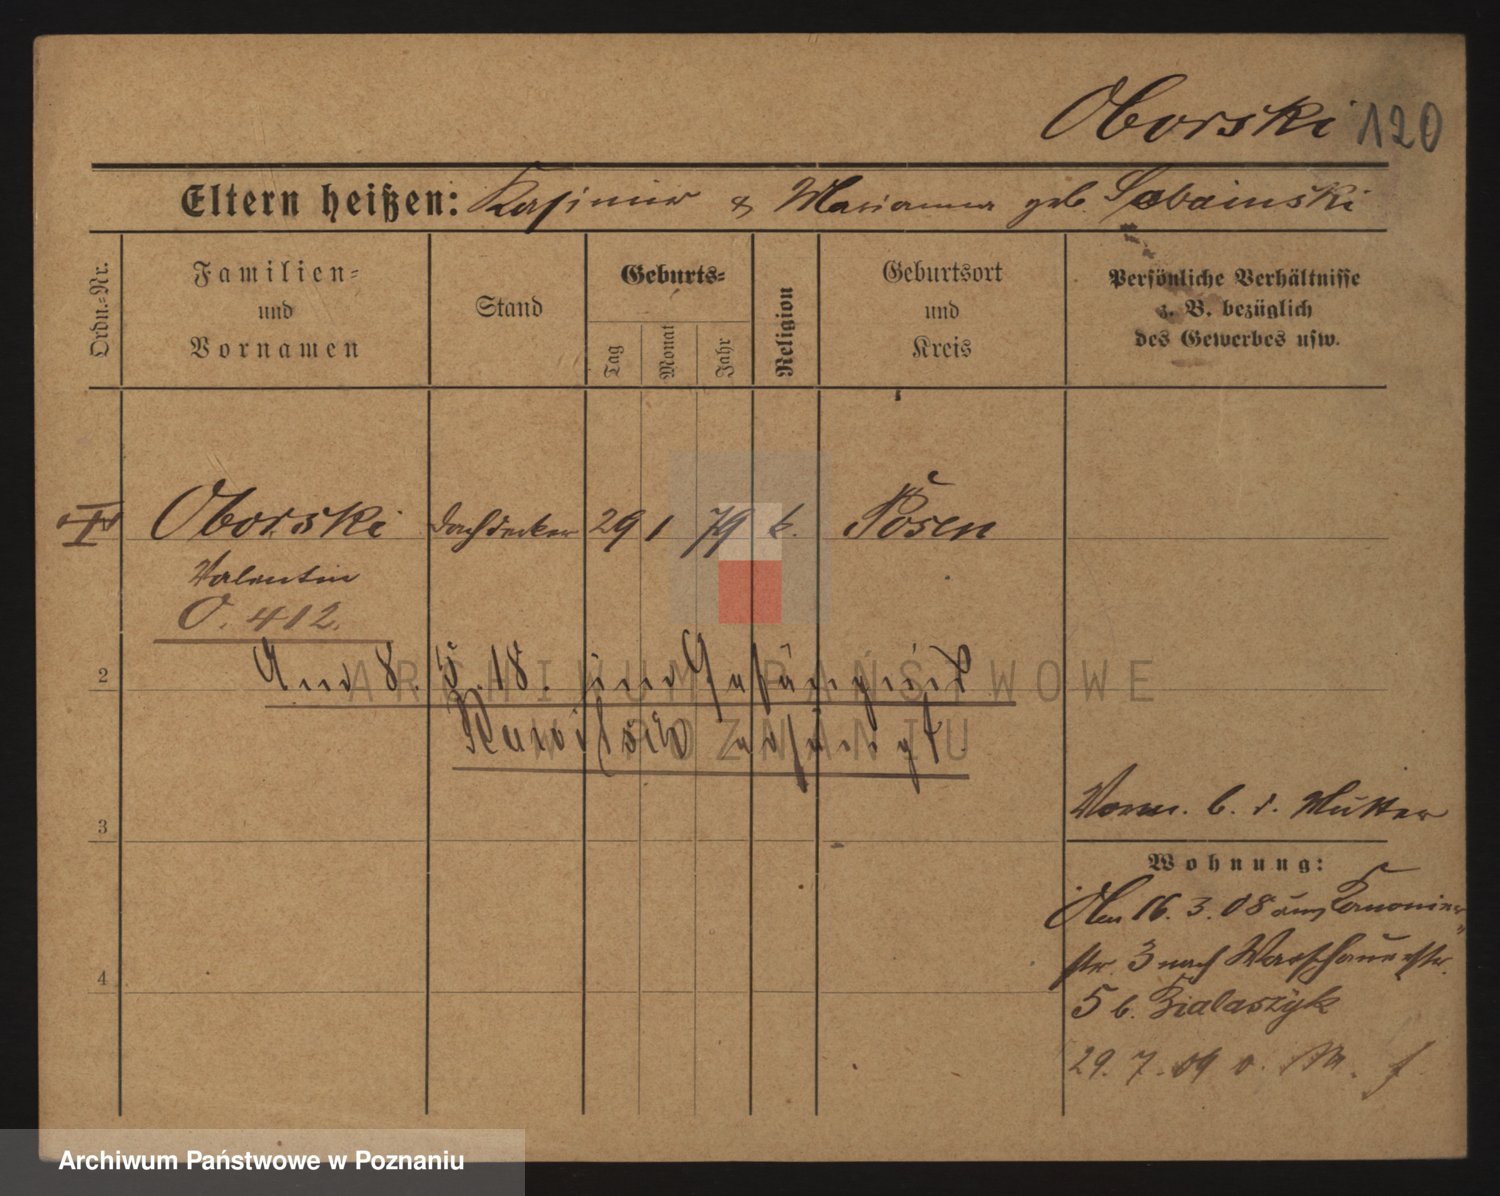 Oborski 120
Eltern heißen: Kasimir & Marianna geb.
Ordn.-Nr.
Familien- und Vornamen
Stand
Geburts-
Tag
Monat
Jahr
Religion
Geburtsort und Kreis
Persönliche Verhältnisse z. B. bezüglich des Gewerbes usw.
Oborski Dachdecker 29 1 79 k. Posen
Valentin
O. 412.
2
Am 8. 5. 18. im Gefängnis
Rawitsch erhängt.
ARCHIWUM PAŃSTWOWE
W POZNANIU
3
4
b. d. Mutter
Wohnung:
16. 3. 08 aus Kanonier-
str. 3 nach Warschauerstr.
5 b.
29. 7. 09
Archiwum Państwowe w Poznaniu